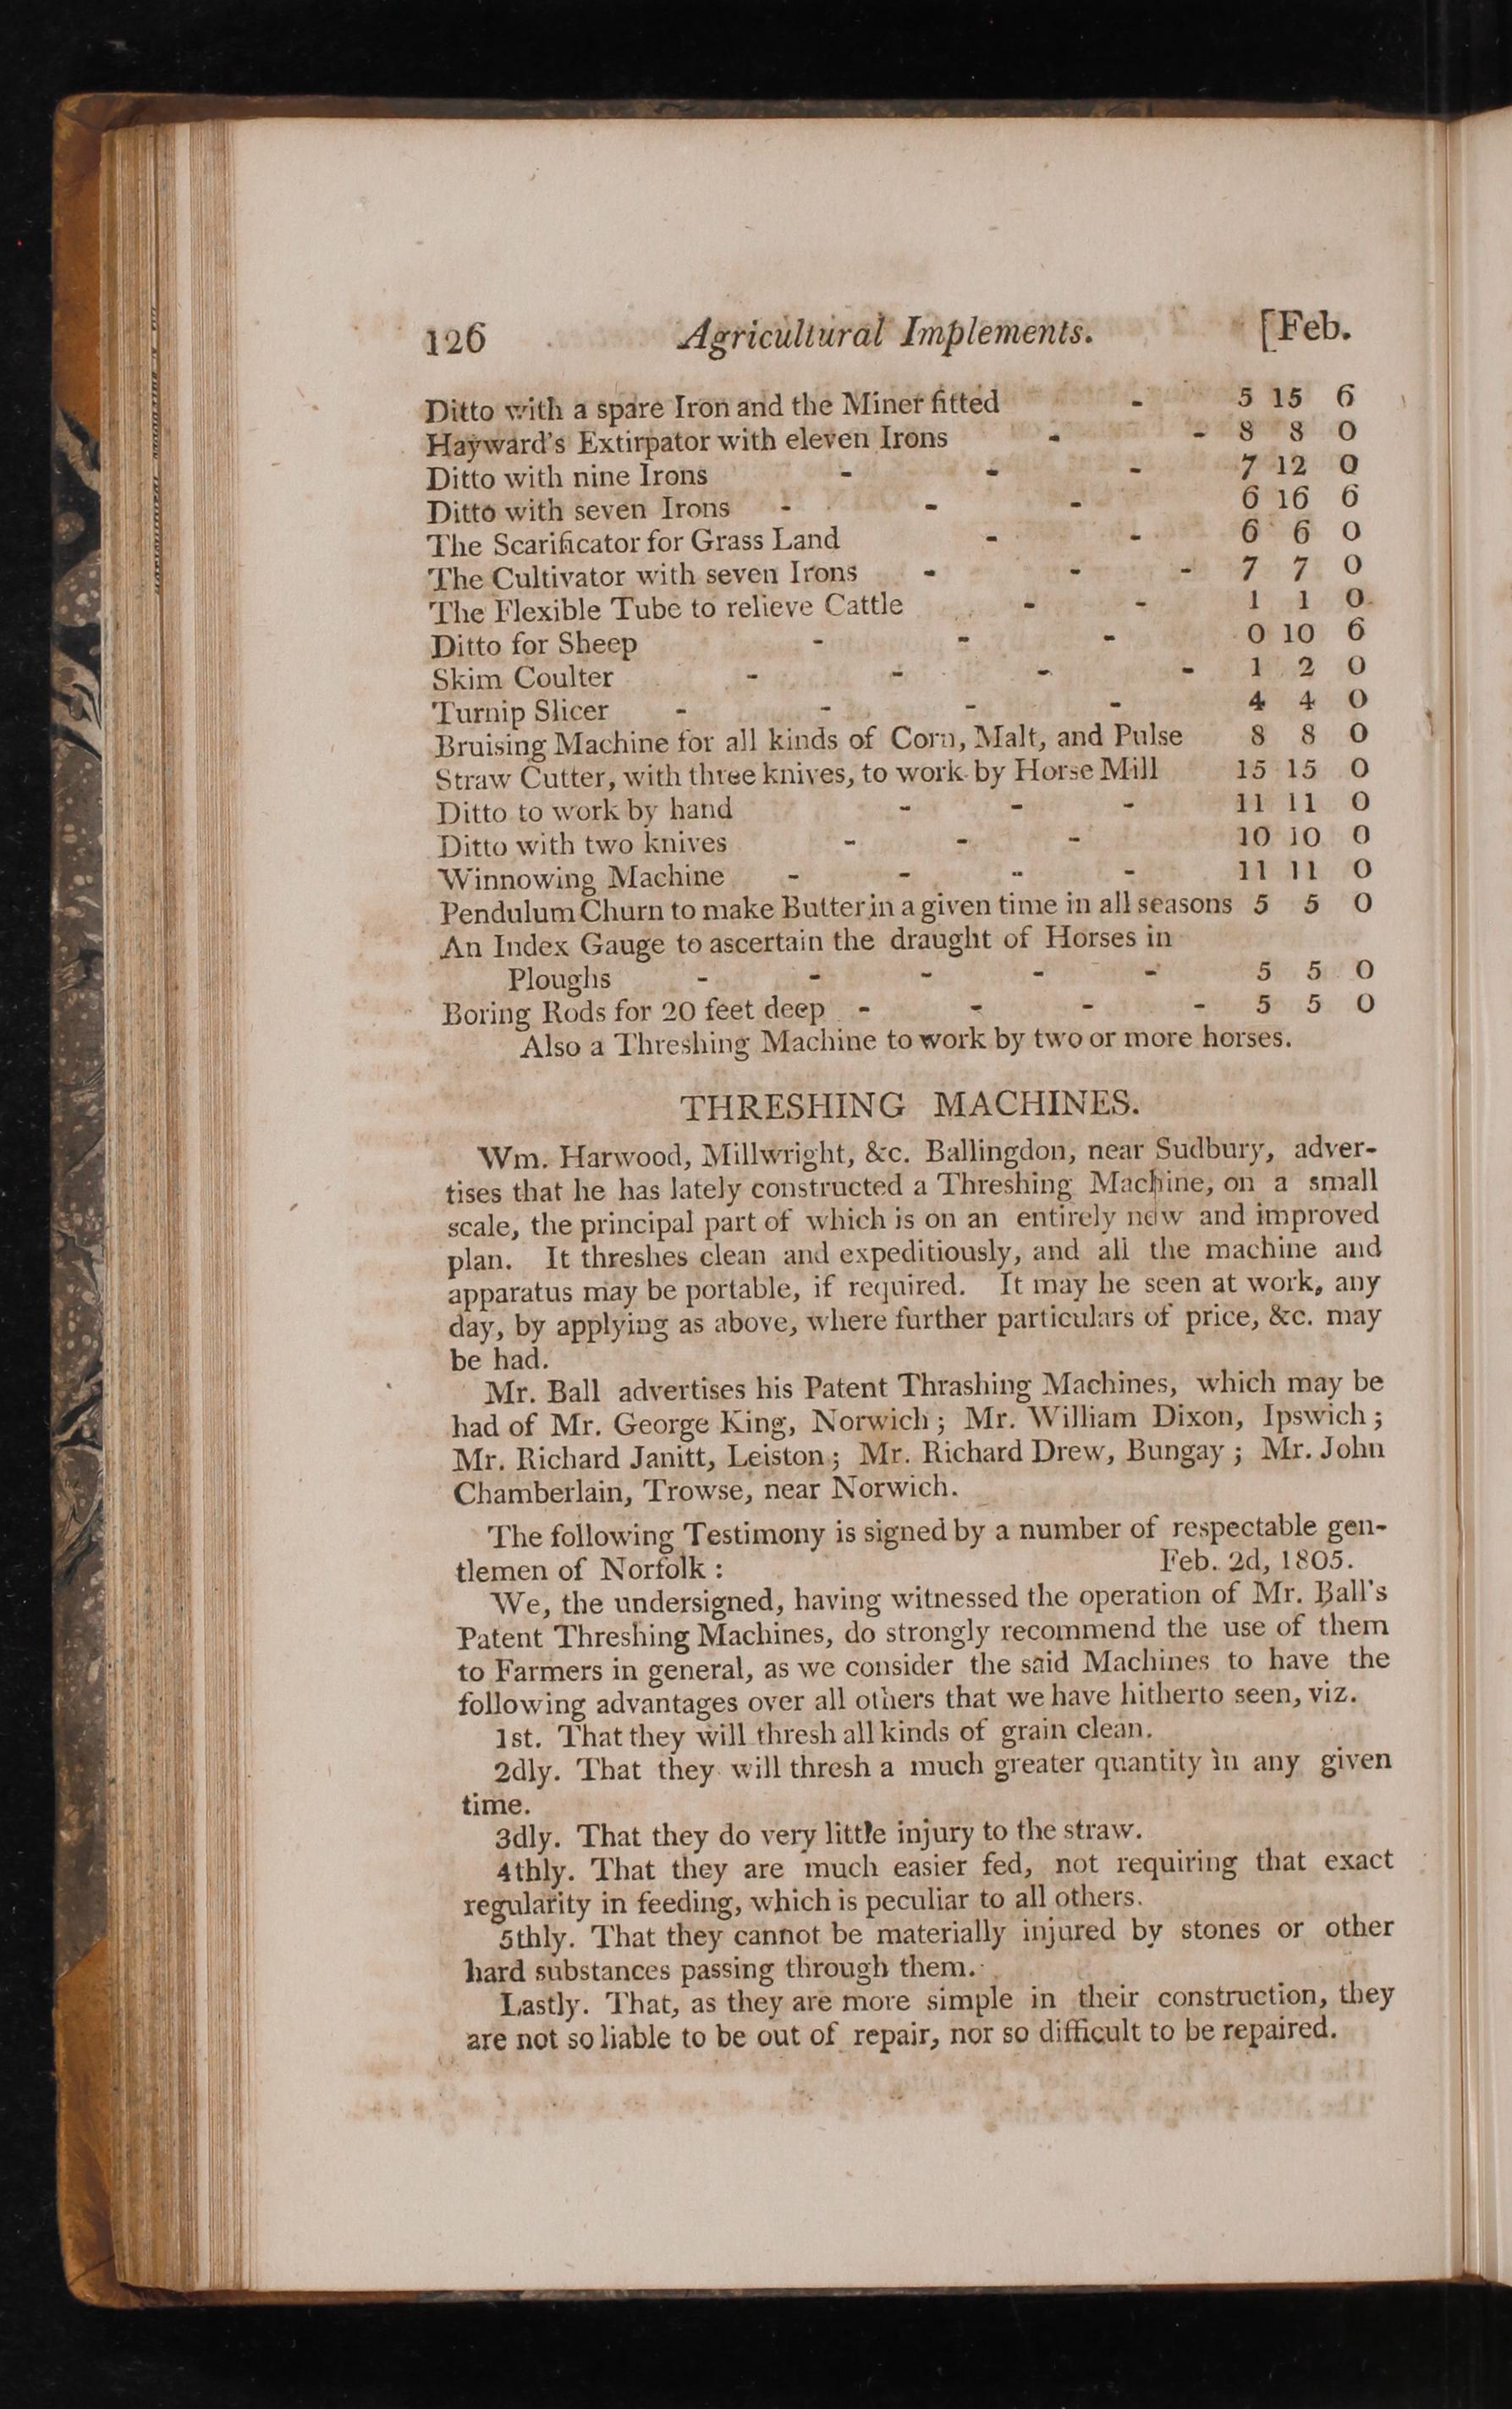 126 Agricultural Implements. [Feb.
Ditto with a spare Iron and the Miner fitted - 5 15 6
Hayward's Extirpator with eleven Irons - - 8 8 0
Ditto with nine Irons - - - 7 12 0
Ditto with seven Irons - - - 6 16 6
The Scarificator for Grass Land - - 6 6 0
The Cultivator with seven Irons - - - 7 7 0
The Flexible Tube to relieve Cattle - - 1 1 0
Ditto for Sheep - - - 0 10 6
Skim Coulter - - - - 1 2 0
Turnip Slicer - - - - 4 4 0
Bruising Machine for all kinds of Corn, Malt, and Pulse 8 8 0
Straw Cutter, with three knives, to work by Horse Mill 15 15 0
Ditto to work by hand - - - 11 11 0
Ditto with two knives - - - 10 10 0
Winnowing Machine - - - - 11 11 0
Pendulum Churn to make Butter in a given time in all seasons 5 5 0
An Index Gauge to ascertain the draught of Horses in
Ploughs - - - - - 5 5 0
Boring Rods for 20 feet deep - - - - 5 5 0
Also a Threshing Machine to work by two or more horses.
THRESHING MACHINES.
Wm. Harwood, Millwright, &c. Ballingdon, near Sudbury, adver-
tises that he has lately constructed a Threshing Machine, on a small
scale, the principal part of which is on an entirely new and improved
plan. It threshes clean and expeditiously, and all the machine and
apparatus may be portable, if required. It may he seen at work, any
day, by applying as above, where further particulars of price, &c. may
be had.
Mr. Ball advertises his Patent Thrashing Machines, which may be
had of Mr. George King, Norwich; Mr. William Dixon, Ipswich;
Mr. Richard Janitt, Leiston; Mr. Richard Drew, Bungay; Mr. John
Chamberlain, Trowse, near Norwich.
The following Testimony is signed by a number of respectable gen-
tlemen of Norfolk: Feb. 2d, 1805.
We, the undersigned, having witnessed the operation of Mr. Ball's
Patent Threshing Machines, do strongly recommend the use of them
to Farmers in general, as we consider the said Machines to have the
following advantages over all others that we have hitherto seen, viz.
1st. That they will thresh all kinds of grain clean.
2dly. That they will thresh a much greater quantity in any given
time.
3dly. That they do very little injury to the straw.
4thly. That they are much easier fed, not requiring that exact
regularity in feeding, which is peculiar to all others.
5thly. That they cannot be materially injured by stones or other
hard substances passing through them.
Lastly. That, as they are more simple in their construction, they
are not so liable to be out of repair, nor so difficult to be repaired.